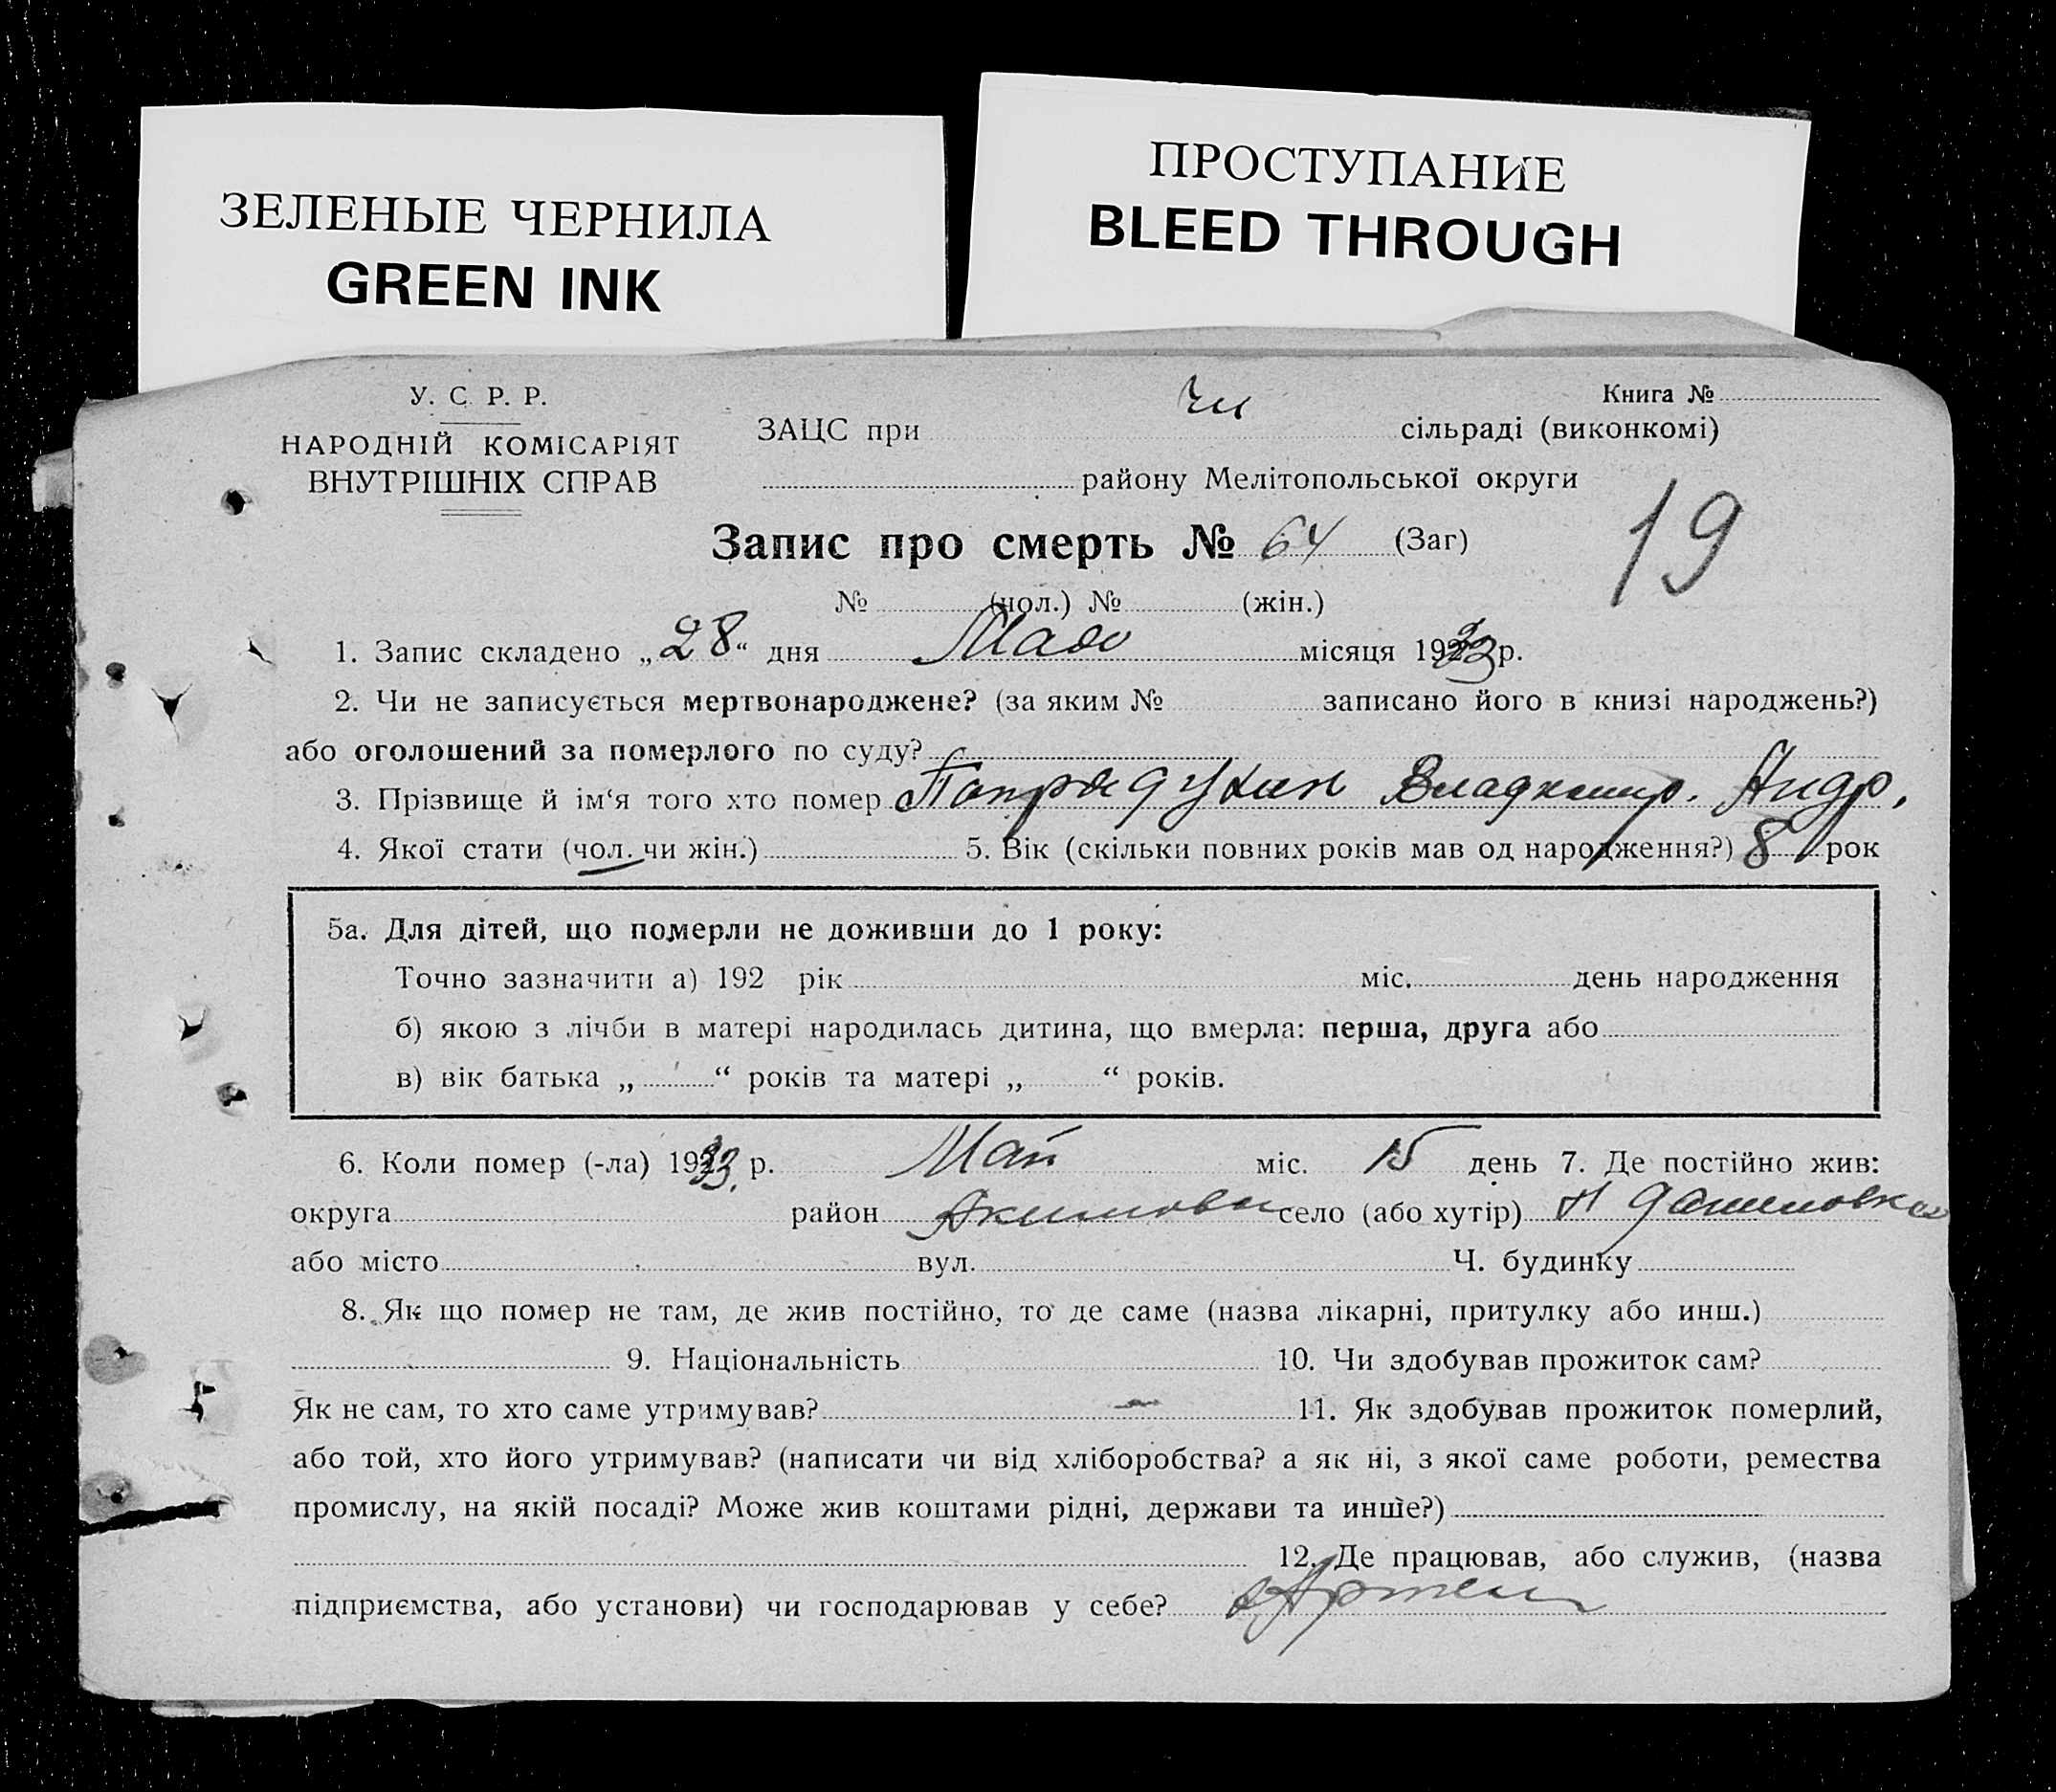 ЗЕЛЕНЫЕ ЧЕРНИЛА
GREEN INK
ПРОСТУПАНИЕ
BLEED THROUGH
У. С. Р. Р.
НАРОДНІЙ КОМІСАРІЯТ
ВНУТРІШНІХ СПРАВ
Книга №
ЗАЦС при сільраді (виконкомі)
району Мелітопольської округи
19
Запис про смерть № 64 (Заг)
№ (чол.) № (жін.)
1. Запис складено „28“ дня Мая місяця 1933 р.
2. Чи не записується мертвонароджене? (за яким № записано його в книзі народжень?)
або оголошений за померлого по суду?
3. Прізвище й ім‘я того хто помер Владимир. Андр.
4. Якої стати (чол. чи жін.) 5. Вік (скільки повних років мав од народження?) 8 рок
5а. Для дітей, що померли не доживши до 1 року:
Точно зазначити а) 192 рік міс. день народження
б) якою з лічби в матері народилась дитина, що вмерла: перша, друга або
в) вік батька „ “ років та матері „ “ років.
6. Коли помер (-ла) 1933 р. Май міс. 15 день 7. Де постійно жив:
округа район Акимовск село (або хутір)
або місто вул. Ч. будинку
8. Як що помер не там, де жив постійно, то де саме (назва лікарні, притулку або инш.)
9. Національність 10. Чи здобував прожиток сам?
Як не сам, то хто саме утримував? — 11. Як здобував прожиток померлий,
або той, хто його утримував? (написати чи від хліборобства? а як ні, з якої саме роботи, ремества
промислу, на якій посаді? Може жив коштами рідні, держави та инше?)
12. Де працював, або служив, (назва
підприємства, або установи) чи господарював у себе? в Артели